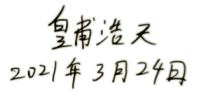 皇甫浩天
2021年3月24日